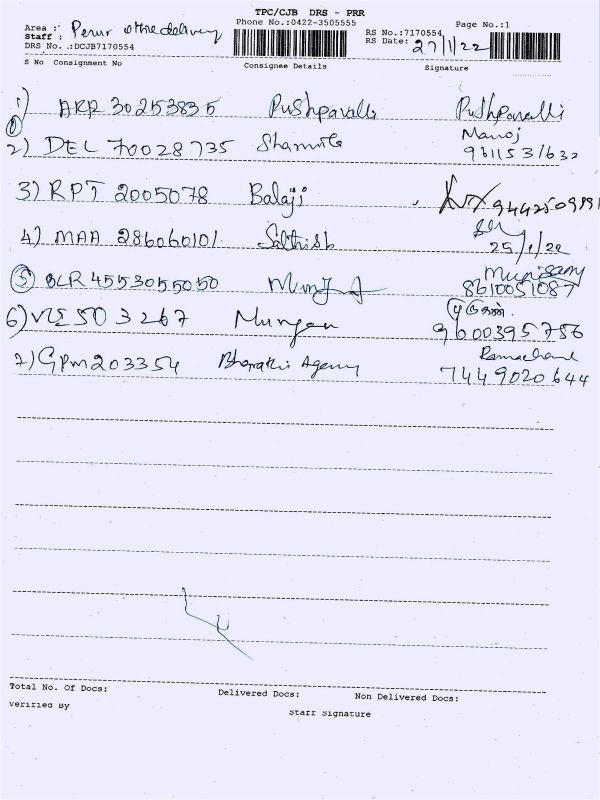 TPC/CJB DRS - PRR
Area : Perur office delivery
Phone No.:0422-3505555
Page No.:1
Staff :
RS No.:7170554
DRS No. .:DCJB7170554
RS Date: 27/1/22
S No Consignment No Consignee Details Signature
1) ARR 30253835 Pushpavalli Pushpavalli
2) DEL 70028735 Manoj
9611531632
3) RPT 2005078 Balaji
4) MAA 286060101 Sathish
25/1/22
5) BLR 4553055050 Munisamy
8610051087
6) Murugan முருகன்
9600395756
7) GPM203354 Bharathi Agency
7449020644
Total No. Of Docs: Delivered Docs: Non Delivered Docs:
Verified By Staff Signature